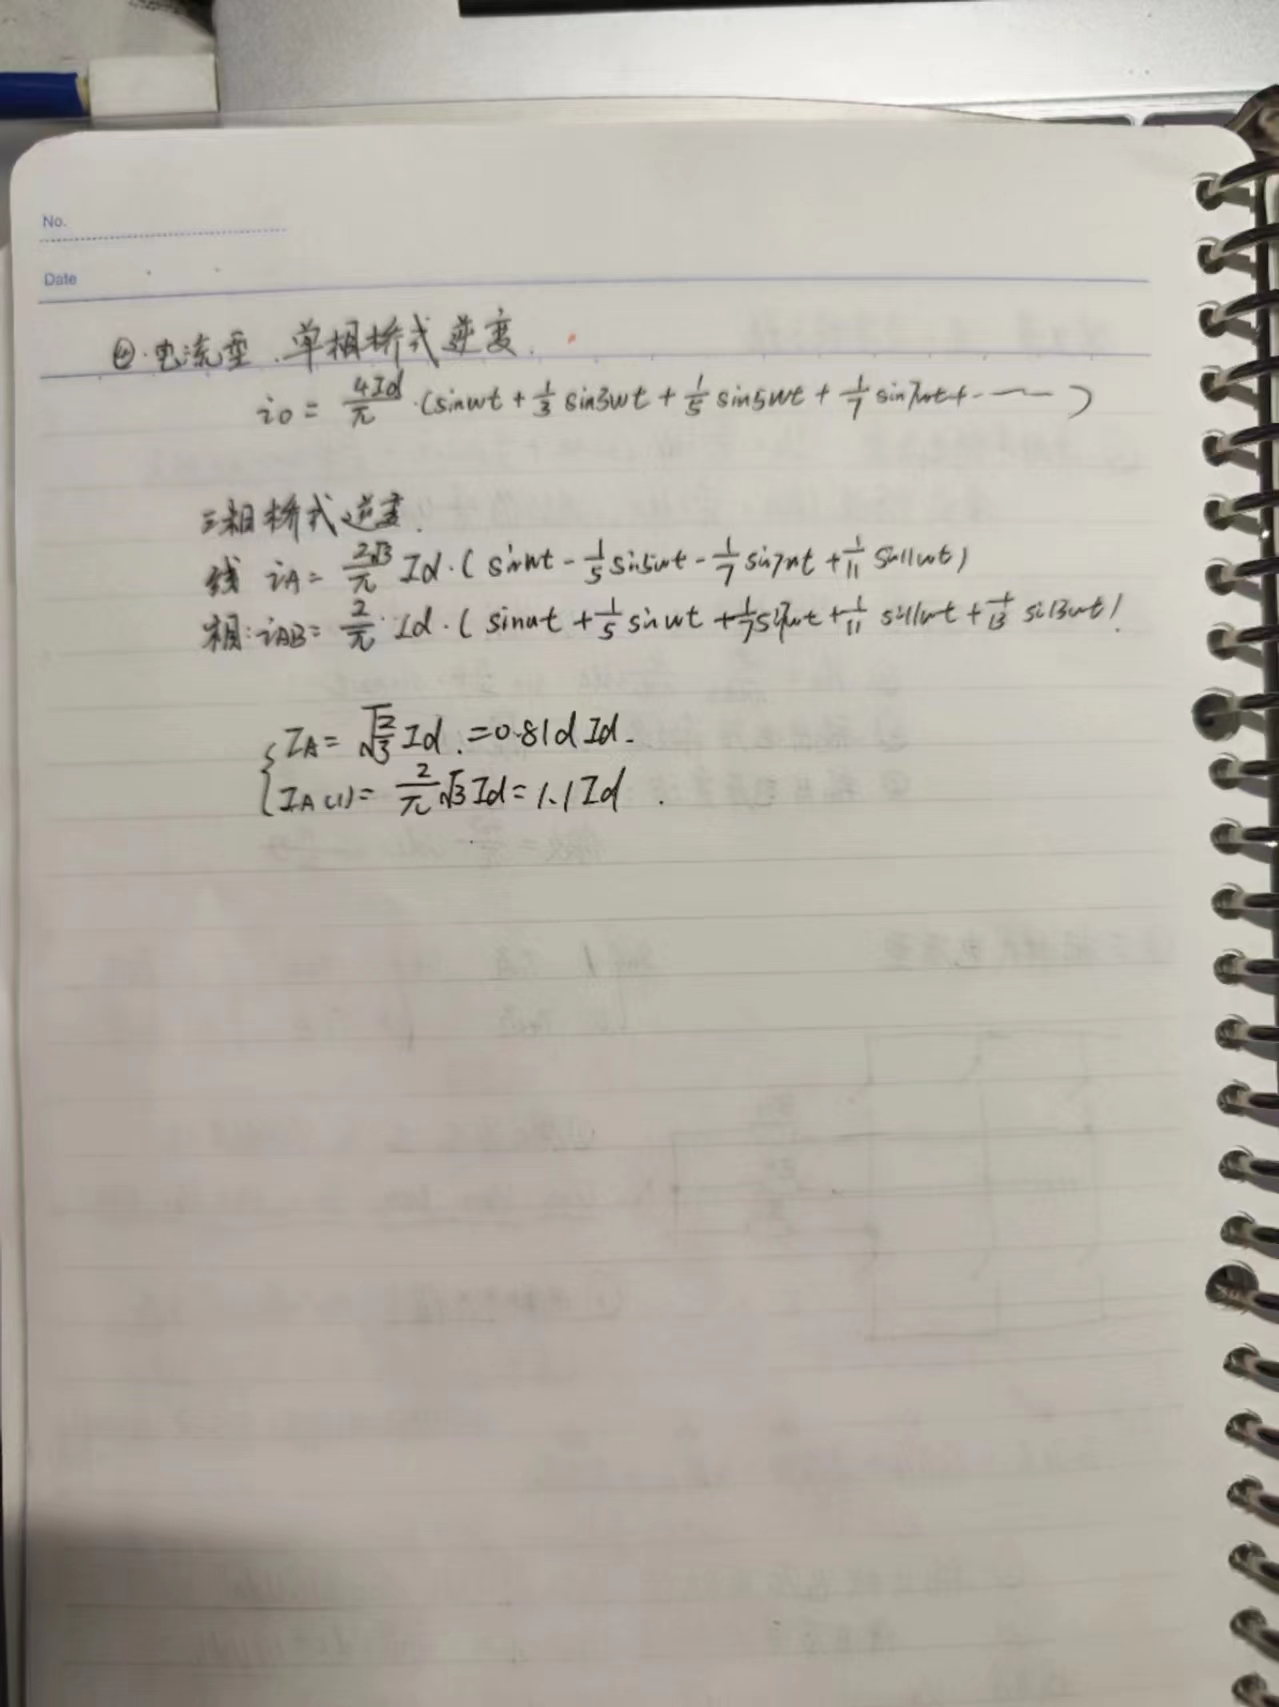 No.
Date
②.电流型.单相桥式逆变.
io = 4Id/π ·(sinwt + 1/3 sin3wt + 1/5 sin5wt + 1/7 sin7wt + ……)
三相桥式逆变.
线 iA = 2√3/π Id·( sinwt - 1/5 sin5wt - 1/7 sin7wt + 1/11 sin11wt)
相: iAB = 2/π · Id·( sinwt + 1/5 sinwt + 1/7 sin7wt + 1/11 sin11wt + 1/13 sin13wt)
IA = √2/3 Id. = 0.81d Id.
IA(1) = 2/π √3 Id = 1.1Id .